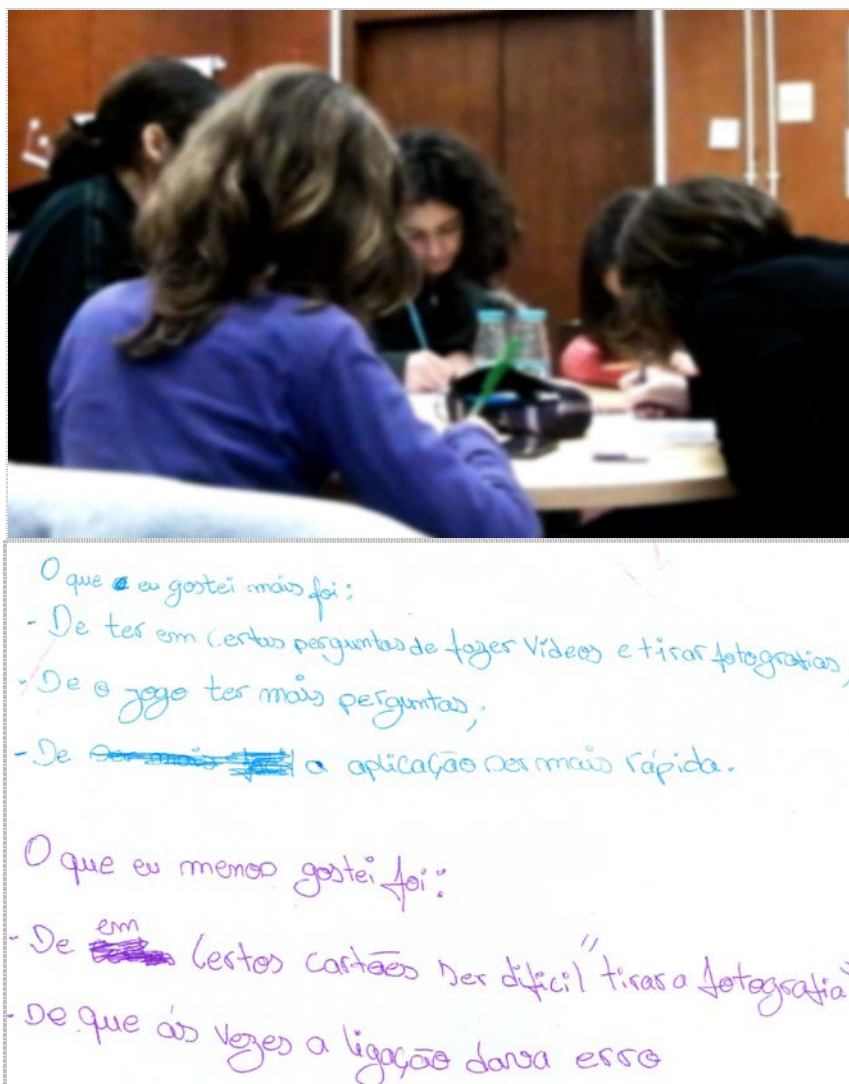 O que eu gostei mais foi:
- De ter em certas perguntas de fazer Vídeos e tirar fotografias,
- De o jogo ter mais perguntas,
- De a aplicação ser mais rápida.
O que eu menos gostei foi:
- De em certos cartões ser difícil "tirar a fotografia"
- De que às vezes a ligação dava erro